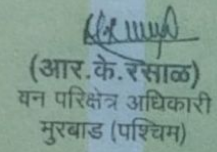 (आर.के.रसाळ)
वन परिक्षेत्र अधिकारी
मुरबाड (पश्चिम)